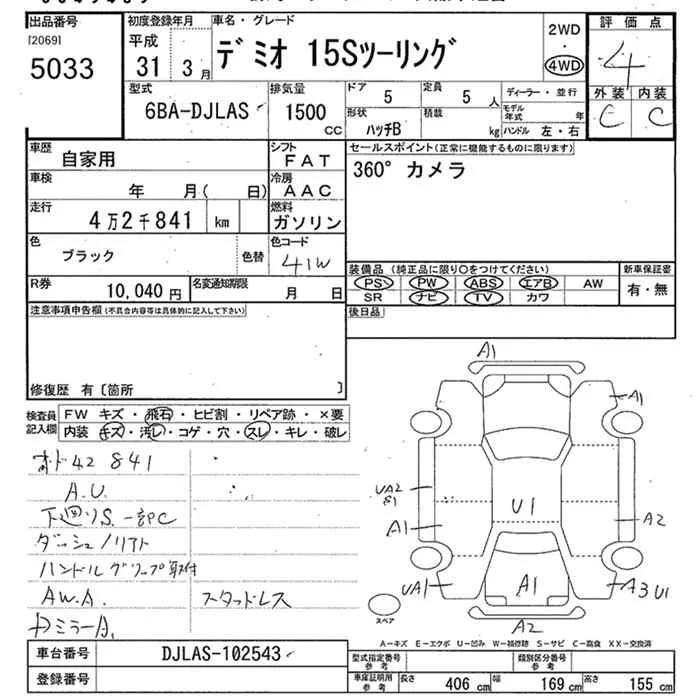 出品番号
[2069]
5033
初度登録年月
平成
31 3月
車名・グレード
デミオ 15Sツーリング
2WD
・
4WD
評価点
4
外装 内装
C C
型式
6BA-DJLAS
排気量
1500
cc
ドア
5
定員
5 人
形状
ハッチB
積載
kg
ディーラー・並行
モデル年式 年
ハンドル 左・右
車歴
自家用
シフト
FAT
車検
年 月( 日)
冷房
AAC
走行
4万2千841 km
燃料
ガソリン
色
ブラック
色替
色コード
41W
R券
10,040 円
名変通知期限
月 日
セールスポイント(正常に機能するものに限ります)
360° カメラ
装備品 (純正品に限り○をつけてください)
新車保証書
PS PW ABS エアB AW
SR ナビ TV カワ
有・無
後日品
注意事項申告欄(不具合内容等は具体的に記入して下さい)
修復歴 有〔箇所 〕
検査員記入欄
FW キズ・飛石・ヒビ割・リペア跡・×要
内装 キズ・汚レ・コゲ・穴・スレ・キレ・破レ
オド42841
A.U.
下廻りS.一部C
ダッシュノリアト
ハンドルグリップ取付
AW.A. スタッドレス
ドミラーA.
A1
A1
UA2
S1
A1
U1
A2
UA1
A1
A3 U1
A2
スペア
A-キズ E-エクボ U-凹み W-補修跡 S-サビ C-腐食 XX-交換済
車台番号
DJLAS-102543
登録番号
型式指定番号
参考
類別区分番号
参考
車庫証明用
参考
長さ 406 cm 幅 169 cm 高さ 155 cm